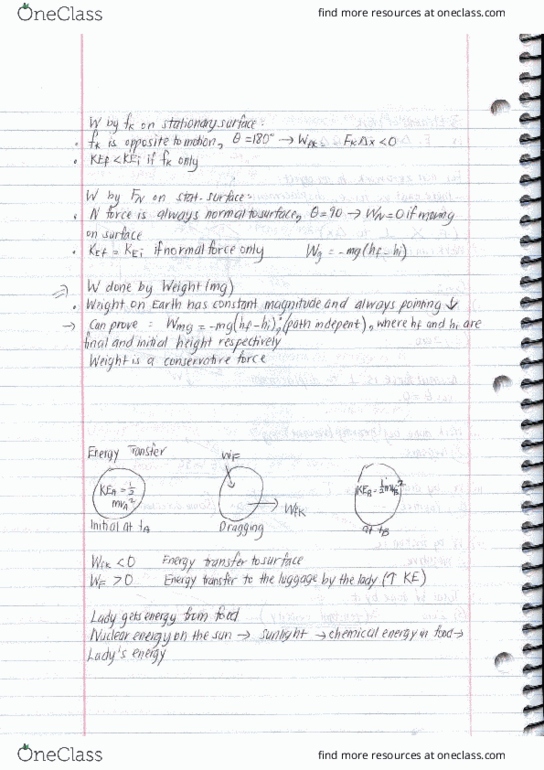 OneClass
find more resources at oneclass.com
W by fk on stationary surface:
• fk is opposite to motion, θ = 180° → Wfk = FkΔx < 0
• KEf < KEi if fk only
W by FN on stat. surface:
• N force is always normal to surface, θ = 90 → WN = 0 if moving
on surface
• KEf = KEi if normal force only Wg = -mg(hf-hi)
⇒ W done by Weight (mg)
• Weight on Earth has constant magnitude and always pointing ↓
→ Can prove: Wmg = -mg(hf-hi), (path indepent), where hf and hi are
final and initial height respectively
Weight is a conservative force
Energy Transfer
WF
KEA = 1/2
mVA²
KEB = 1/2 mVB²
WfK
Initial at tA
Dragging
at tB
Wfk < 0 Energy transfer to surface
WF > 0 Energy transfer to the luggage by the lady (↑ KE)
Lady gets energy from food
Nuclear energy on the sun → sunlight → chemical energy in food →
Lady's energy
OneClass
find more resources at oneclass.com